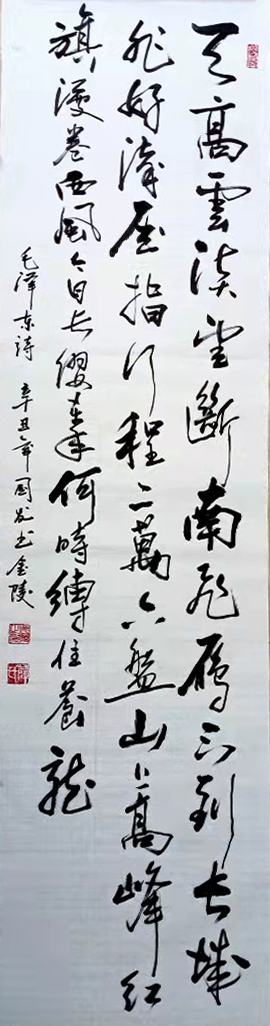 天高雲淡望斷南飛雁不到长城
非好漢屈指行程二萬六盤山上高峰红
旗漫卷西風今日长缨在手何時縛住蒼龍
毛泽东诗 辛丑年國发书金陵